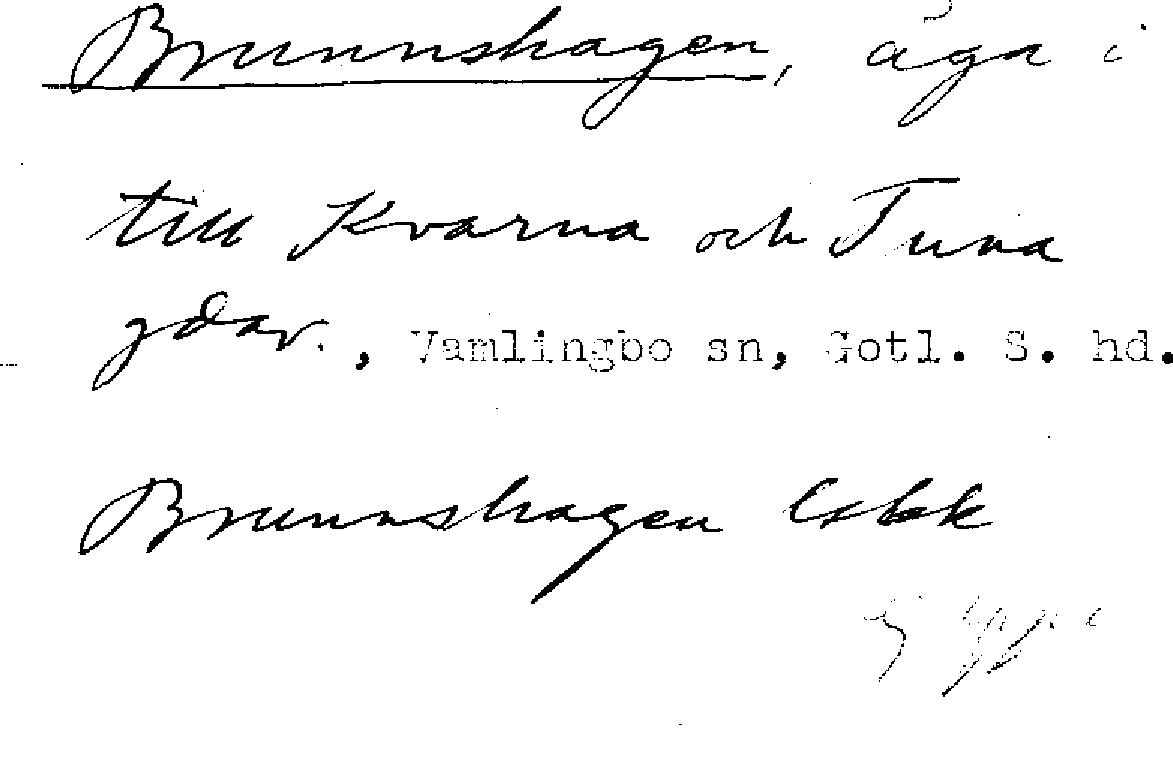 Brunnshagen, äga i
till Kvarna och Tuna
gdar., Vamlingbo sn, Gotl. S. hd.
Brunnshagen
ej upp i